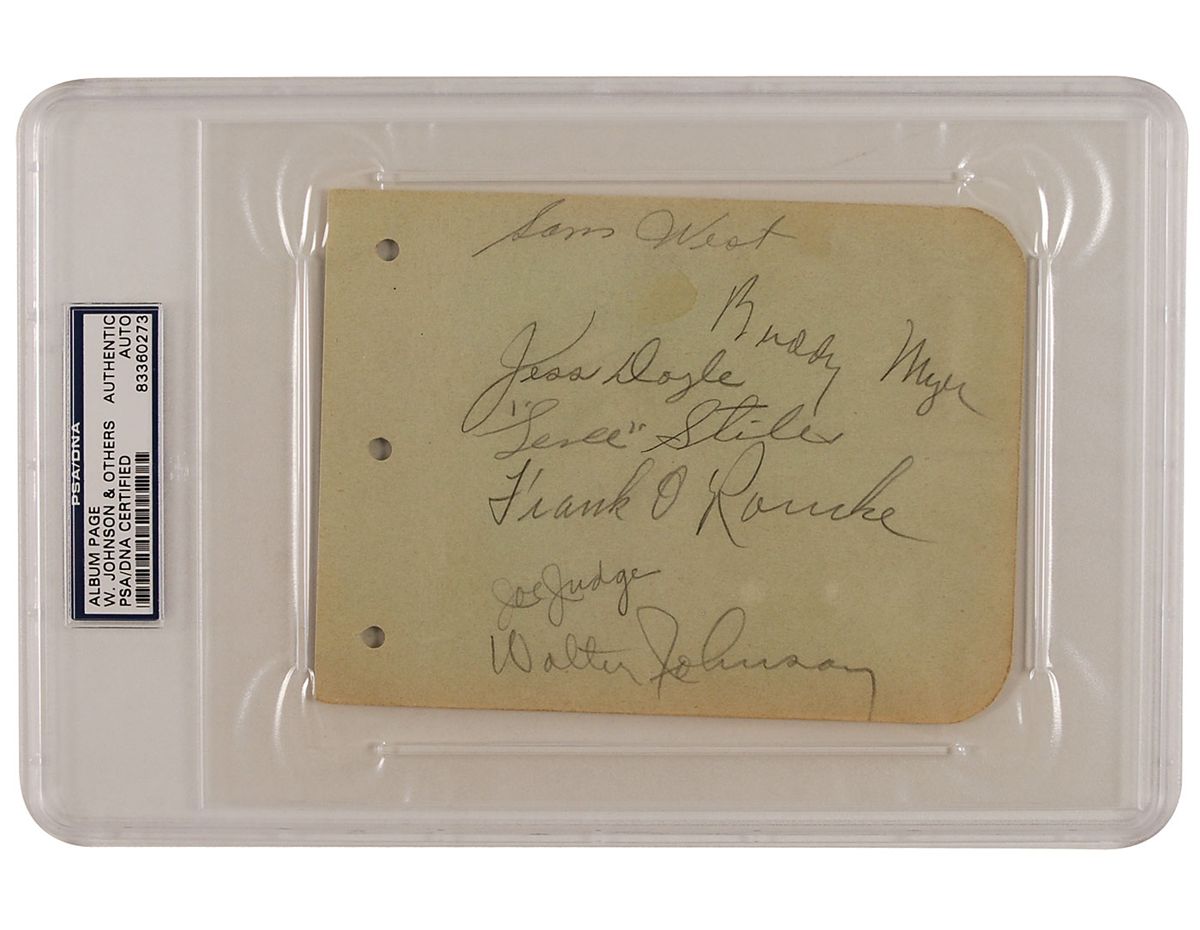 PSA/DNA
ALBUM PAGE
W. JOHNSON & OTHERS AUTHENTIC
PSA/DNA CERTIFIED AUTO
83360273
Sam West
Buddy Myer
Jess Doyle
" " Stiles
Frank O Rourke
Joe Judge
Walter Johnson